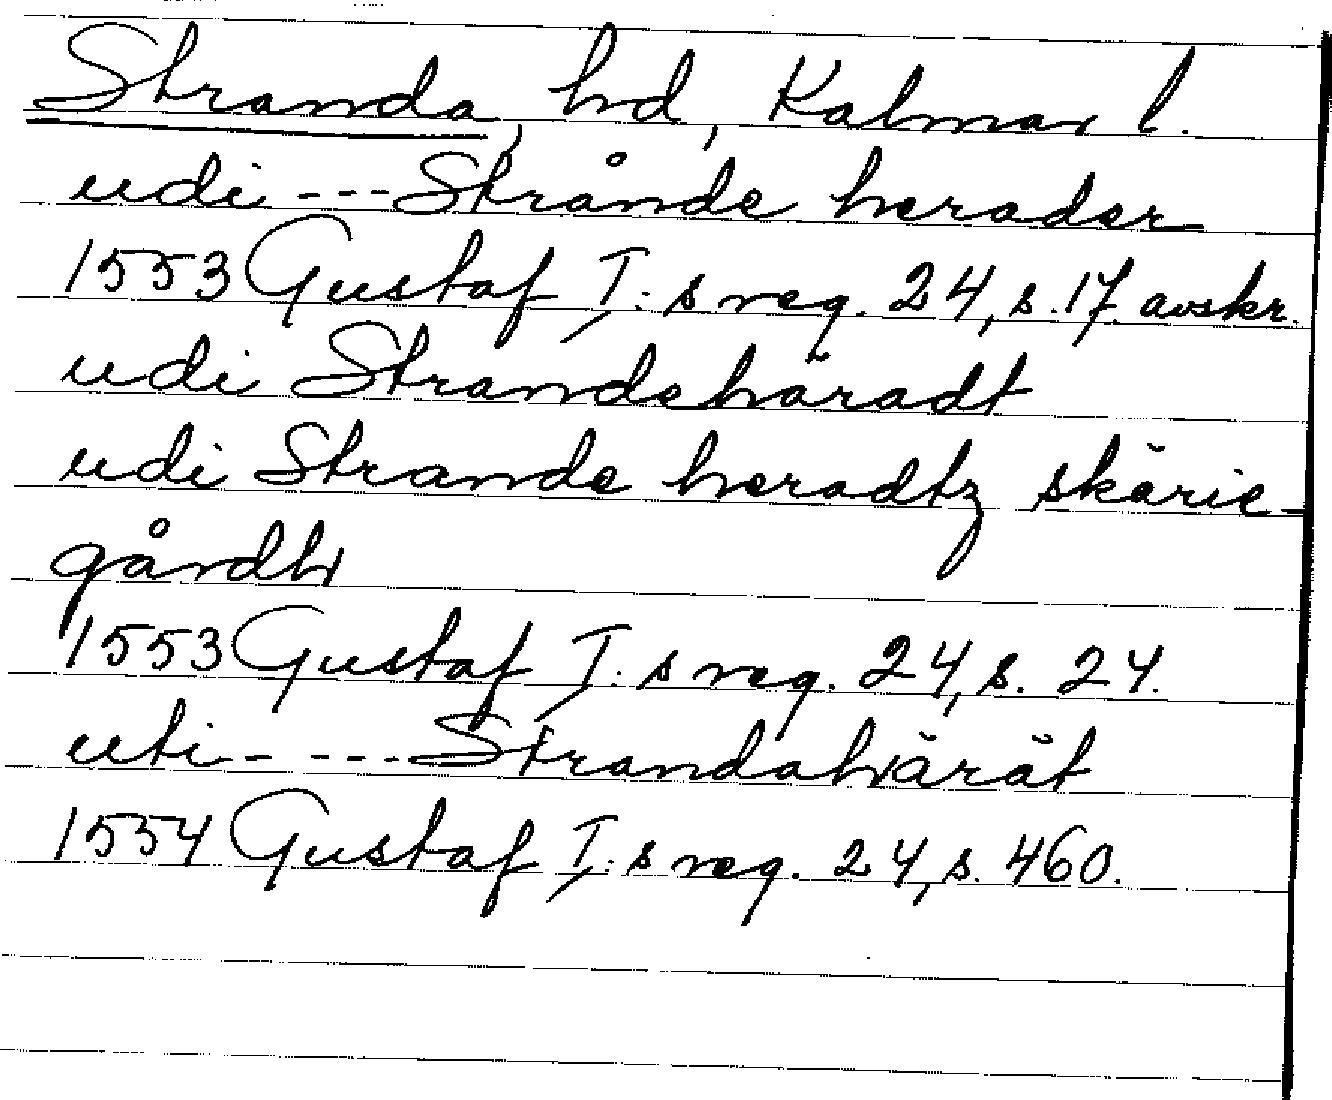 Stranda, hd, Kalmar l.
udi --- Strånde herader
1553 Gustaf I:s reg. 24, s. 17. avskr.
udi Strandehäradt
udi Strande heradtz skärie-
gårdh
1553 Gustaf I:s reg. 24, s. 24.
uti - --- Strandahärät
1554 Gustaf I:s reg. 24, s. 460.